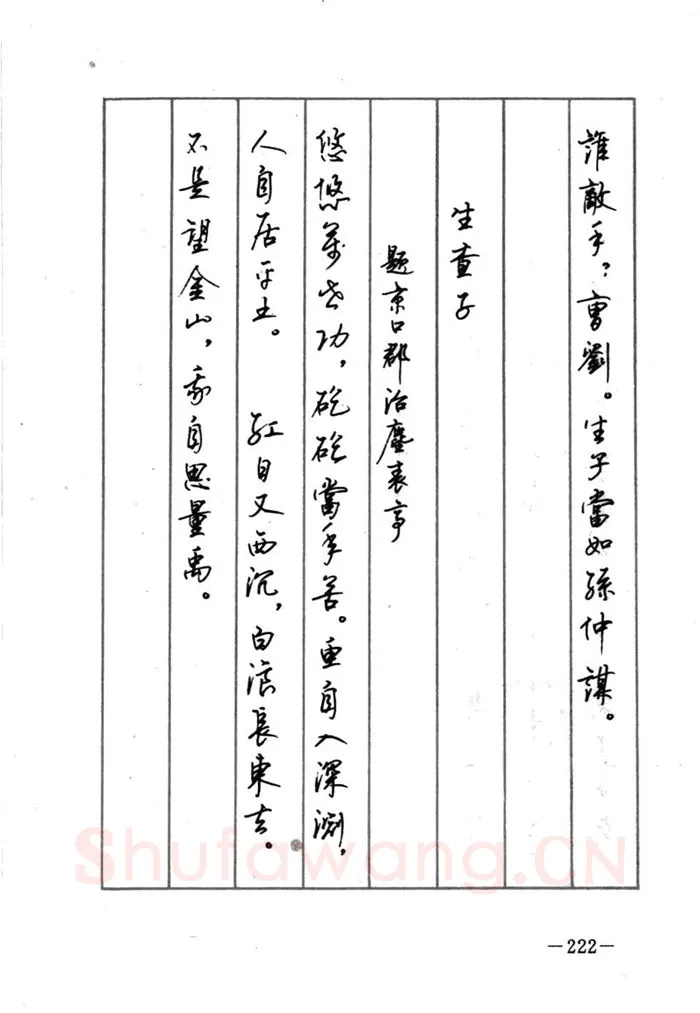 誰敵手？曹劉。生子當如孫仲謀。
生查子
題京口郡治塵表亭
悠悠萬世功，矻矻當年苦。魚自入深淵，
人自居平土。 紅日又西沉，白浪長東去。
不是望金山，我自思量禹。
Shufawang.CN
—222—